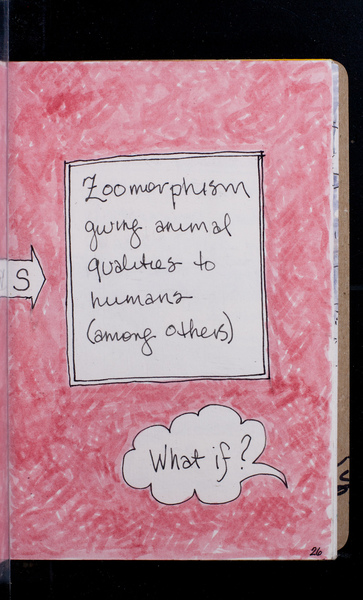 Zoomorphism
giving animal
qualities to
humans
(among others)
S
What if?
26